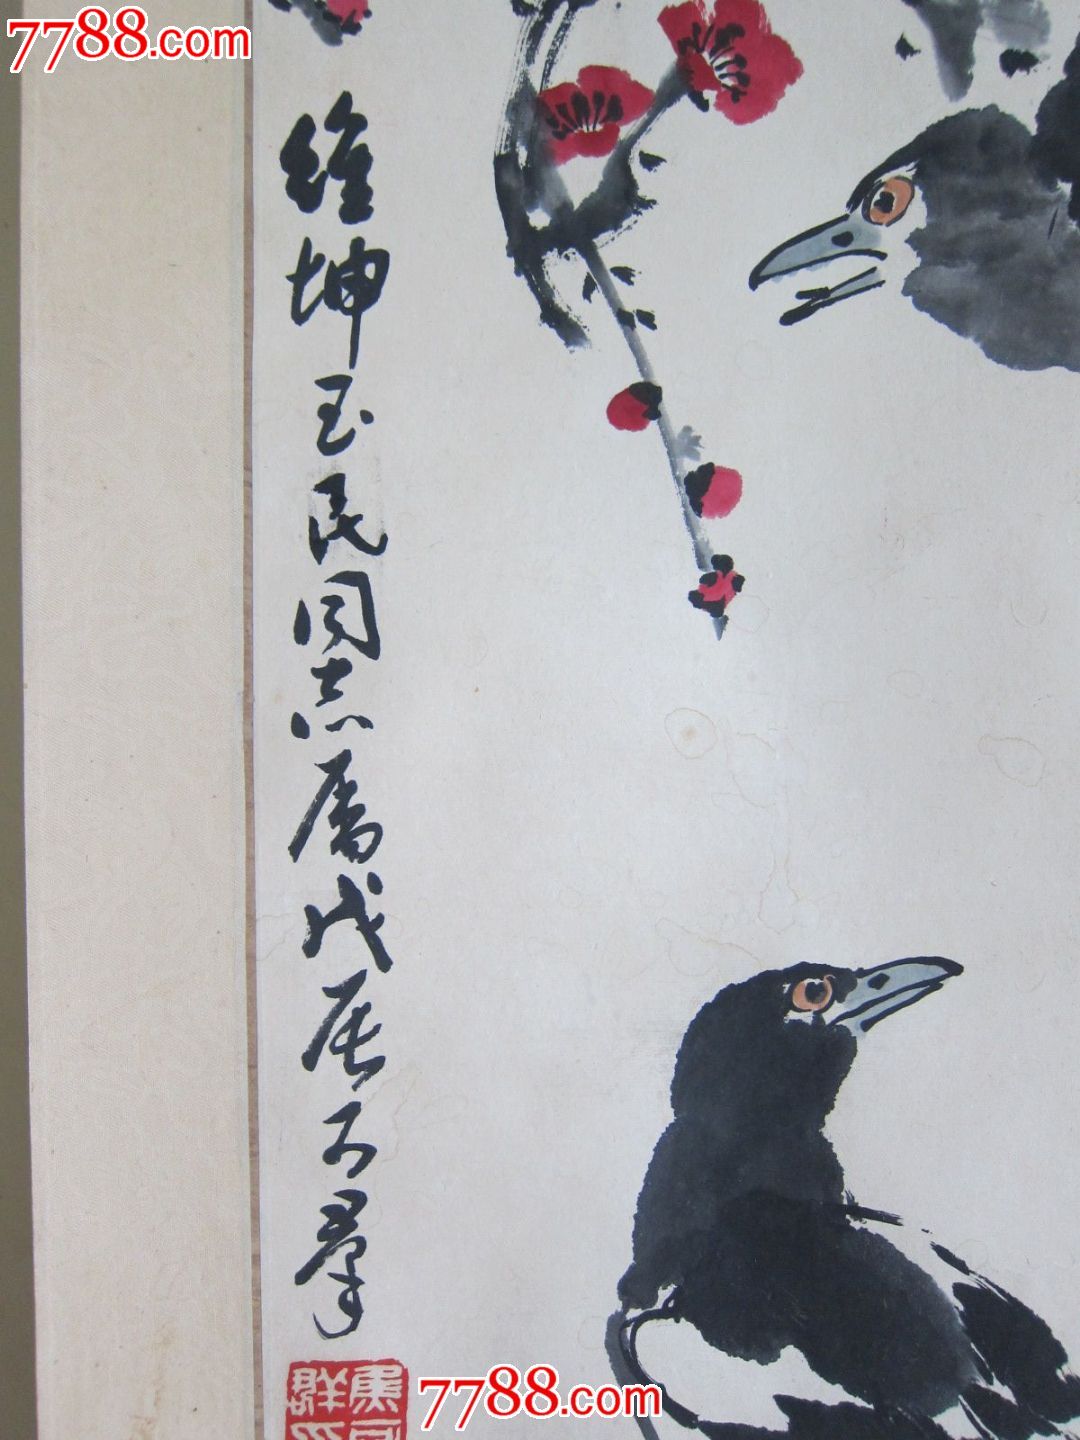 7788.com
维坤玉民同志属戊辰可羣
7788.com